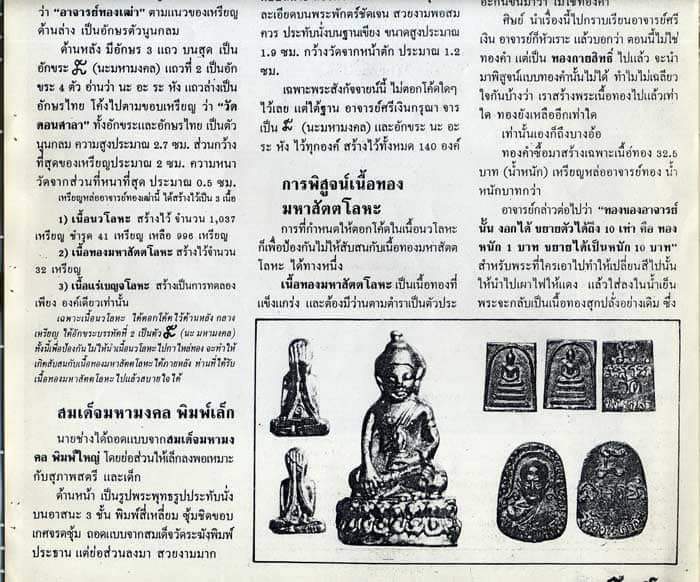 ว่า "อาจารย์ทองเฒ่า" ตามแนวของเหรียญ
ด้านล่าง เป็นอักษรตัวนูนกลม
ด้านหลัง มีอักษร 3 แถว บนสุด เป็น
อักขระ (นะมหามงคล) แถวที่ 2 เป็นอัก
ขระ 4 ตัว อ่านว่า นะ อะ ระ หัง แถวล่างเป็น
อักษรไทย โค้งไปตามขอบเหรียญ ว่า "วัด
ดอนศาลา" ทั้งอักขระและอักษรไทย เป็นตัว
นูนกลม ความสูงประมาณ 2.7 ซม. ส่วนกว้าง
ที่สุดของเหรียญประมาณ 2 ซม. ความหนา
วัดจากส่วนที่หนาที่สุด ประมาณ 0.5 ซม.
เหรียญหล่ออาจารย์ทองเฒ่านี้ ได้สร้างไว้เป็น 3 เนื้อ
1) เนื้อนวโลหะ สร้างไว้ จำนวน 1,037
เหรียญ ชำรุด 41 เหรียญ เหลือ 996 เหรียญ
2) เนื้อทองมหาสัตตโลหะ สร้างไว้จำนวน
32 เหรียญ
3) เนื้อแร่เบญจโลหะ สร้างเป็นการทดลอง
เพียง องค์เดียวเท่านั้น
เฉพาะเนื้อนวโลหะ ให้ตอกโค้ดไว้ด้านหลัง กลาง
เหรียญ ใต้อักขระบรรทัดที่ 2 เป็นตัว (นะ มหามงคล)
ทั้งนี้เพื่อป้องกันไม่ให้นำเนื้อนวโลหะไปกาไหล่ทอง จะทำให้
เกิดสับสนกับเนื้อทองมหาสัตตโลหะได้ภายหลัง ท่านที่ได้รับ
เนื้อทองมหาสัตตโลหะไปแล้วสบายใจได้
สมเด็จมหามงคล พิมพ์เล็ก
นายช่างได้ถอดแบบจากสมเด็จมหามง
คล พิมพ์ใหญ่ โดยย่อส่วนให้เล็กลงพอเหมาะ
กับสุภาพสตรี และเด็ก
ด้านหน้า เป็นรูปพระพุทธรูปประทับนั่ง
บนอาสนะ 3 ชั้น พิมพ์สี่เหลี่ยม ซุ้มชิดขอบ
เกศจรดซุ้ม ถอดแบบจากสมเด็จวัดระฆังพิมพ์
ประธาน แต่ย่อส่วนลงมา สวยงามมาก
ละเอียดบนพระพักตร์ชัดเจน สวยงามพอสม
ควร ประทับนั่งบนฐานเขียง ขนาดสูงประมาณ
1.9 ซม. กว้างวัดจากหน้าตัก ประมาณ 1.2
ซม.
เฉพาะพระสังกัจจายน์นี้ ไม่ตอกโค้ดใดๆ
ไว้เลย แต่ใต้ฐาน อาจารย์ศรีเงินกรุณา จาร
เป็น (นะมหามงคล) และอักขระ นะ อะ
ระ หัง ไว้ทุกองค์ สร้างไว้ทั้งหมด 140 องค์
การพิสูจน์เนื้อทอง
มหาสัตตโลหะ
การที่กำหนดให้ตอกโค้ดในเนื้อนวโลหะ
ก็เพื่อป้องกันไม่ให้สับสนกับเนื้อทองมหาสัตต
โลหะ ได้ทางหนึ่ง
เนื้อทองมหาสัตตโลหะ เป็นเนื้อทองที่
แข็งแกร่ง และต้องมีว่านตามตำราเป็นตัวประ
ศิษย์ นำเรื่องนี้ไปกราบเรียนอาจารย์ศรี
เงิน อาจารย์ก็หัวเราะ แล้วบอกว่า ตอนนี้ไม่ใช่
ทองคำ แต่เป็น ทองกายสิทธิ์ ไปแล้ว จะนำ
มาพิสูจน์แบบทองคำนั้นไม่ได้ ทำไมไม่เฉลียว
ใจกันบ้างว่า เราสร้างพระเนื้อทองไปแล้วเท่า
ใด ทองยังเหลืออีกเท่าใด
เท่านั้นเองก็ถึงบางอ้อ
ทองคำซื้อมาสร้างเฉพาะเนื้อทอง 32.5
บาท (น้ำหนัก) เหรียญหล่ออาจารย์ทอง น้ำ
หนักบาทกว่า
อาจารย์กล่าวต่อไปว่า "ทองของอาจารย์
นั้น งอกได้ ขยายตัวได้ถึง 10 เท่า คือ ทอง
หนัก 1 บาท ขยายได้เป็นหนัก 10 บาท"
สำหรับพระที่ใครเอาไปทำให้เปลี่ยนสีไปนั้น
ให้นำไปเผาไฟให้แดง แล้วใส่ลงในน้ำเย็น
พระจะกลับเป็นเนื้อทองสุกปลั่งอย่างเดิม ซึ่ง